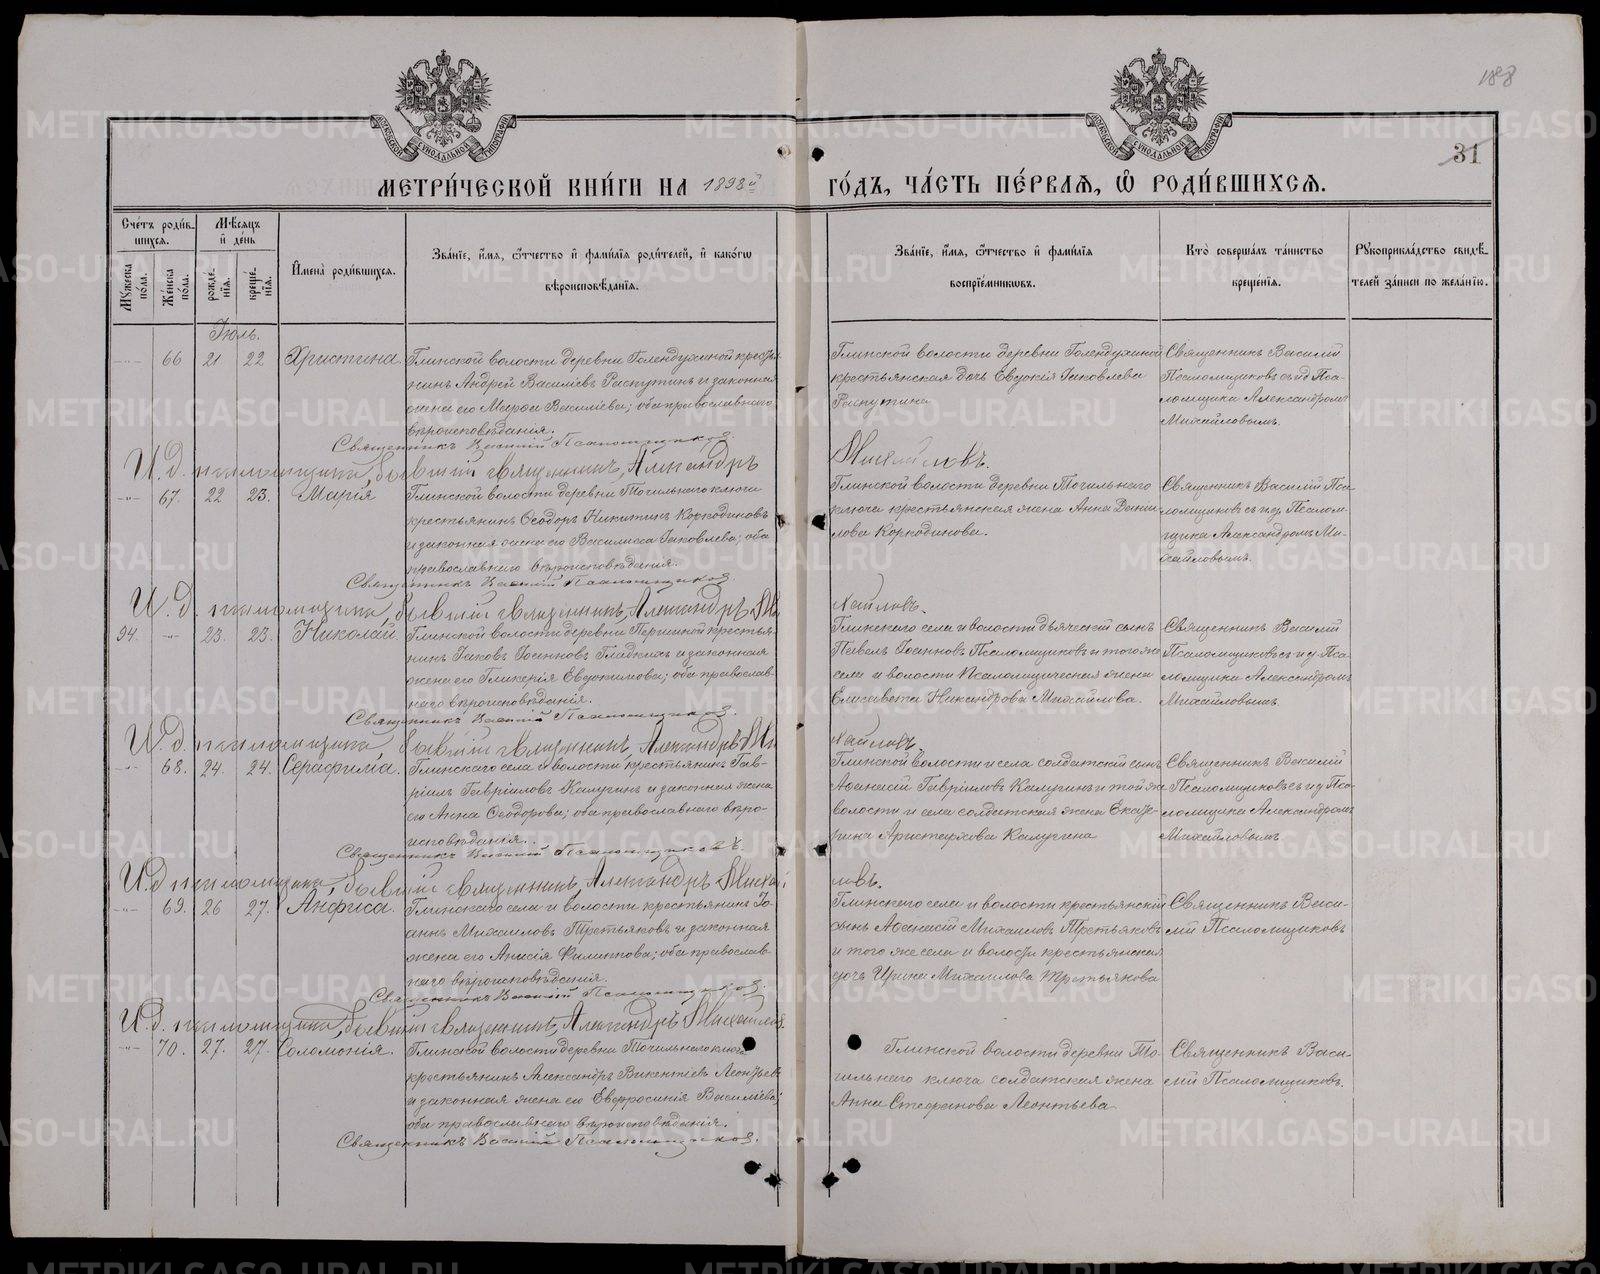 188
31
МЕТРИ́ЧЕСКОЙ КНИ́ГИ НА 1898й ГО́ДЪ, ЧА́СТЬ ПЕ́РВАЯ, Ѡ҆ РОДИ́ВШИХСЯ.
Сче́тъ роди́в-
шихся.
Мѣ́сяцъ
и҆ де́нь
Мꙋ́жеска по́ла.
Же́нска по́ла.
рожде́-
нїя.
креще́-
нїя.
И҆мена̀ роди́вшихся.
Зва́нїе, и҆́мя, ѻ҆́тчество и҆ фами́лїя роди́телей, и҆ како́гѡ
вѣроисповѣ́данїя.
Зва́нїе, и҆́мя, ѻ҆́тчество и҆ фами́лїя
воспрїе́мникѡвъ.
Кто̀ соверша́лъ та́инство
креще́нїя.
Рꙋкоприкла́дство свидѣ́-
телей за́писи по жела́нїю.
Іюль.
66 21 22 Христина
Глинской волости деревни Голендухиной кресть-
нинъ Андрей Василіевъ Распутинъ и законная
жена его Марѳа Василіева; оба православнаго
вѣроисповѣданія.
Глинской волости деревни Голендухиной
крестьянская дочь Евдокія Іаковлева
Распутина
Священникъ Василій
Псаломщиковъ съ и д Пса-
ломщика Александромъ
Михайловымъ.
Священникъ Василій Псаломщиковъ.
И. д. псаломщика, бывшій священникъ, Александръ
Михайловъ.
67. 22 23. Марія
Глинской волости деревни Точильнаго ключа
крестьянинъ Ѳеодоръ Никитинъ Коркодиновъ
и законная жена его Василисса Іаковлева; оба
православнаго вѣроисповѣданія.
Глинской волости деревни Точильнаго
ключа крестьянская жена Анна Дани-
лова Коркодинова.
Священникъ Василій Пса-
ломщиковъ съ и д Псалом-
щика Александромъ Ми-
хайловымъ.
Священникъ Василій Псаломщиковъ.
И. д. псаломщика, бывшій священникъ, Александръ Ми
хайловъ.
94. 23. 23. Николай
Глинской волости деревни Першиной крестья-
нинъ Іаковъ Іоанновъ Гладкихъ и законная
жена его Гликерія Евдокимова; оба православ-
наго вѣроисповѣданія.
Глинскаго села и волости дьяческій сынъ
Павелъ Іоанновъ Псаломщиковъ и того же
села и волости Псаломщическая жена
Елисавета Никандрова Михайлова.
Священникъ Василій
Псаломщиковъ съ и д Пса-
ломщика Александромъ
Михайловымъ.
Священникъ Василій Псаломщиковъ.
И. д. псаломщика, бывшій священникъ, Александръ Ми
хайловъ.
68. 24. 24. Серафима.
Глинскаго села и волости крестьянинъ Гав-
ріилъ Гавріиловъ Калугинъ и законная жена
его Анна Ѳеодорова; оба православнаго вѣро-
исповѣданія.
Глинской волости и села солдатскій сынъ
Аѳанасій Гавріиловъ Калугинъ и той же
волости и села солдатская жена Екате-
рина Аристархова Калугина
Священникъ Василій
Псаломщиковъ съ и д Пса-
ломщика Александромъ
Михайловымъ
Священникъ Василій Псаломщиковъ.
И. д. псаломщика, бывшій священникъ, Александръ Михай
ловъ.
69. 26 27. Анфиса.
Глинскаго села и волости крестьянинъ Іо-
аннъ Михаиловъ Третьяковъ и законная
жена его Анисія Филиппова; оба православ-
наго вѣроисповѣданія.
Глинскаго села и волости крестьянскій
сынъ Аѳанасій Михаиловъ Третьяковъ
и того же села и волости крестьянская
дочь Ирина Михаилова Третьякова
Священникъ Васи-
лій Псаломщиковъ
Священникъ Василій Псаломщиковъ.
И. д. псаломщика, бывшій священникъ, Александръ Михайловъ.
70. 27. 27. Соломонія.
Глинской волости деревни Точильнаго ключа
крестьянинъ Александръ Викентіевъ Леонтьевъ
и законная жена его Евфросинія Василіева;
оба православнаго вѣроисповѣданія.
Глинской волости деревни То-
чильнаго ключа солдатская жена
Анна Стефанова Леонтьева
Священникъ Васи-
лій Псаломщиковъ.
Священникъ Василій Псаломщиковъ.
METRIKI.GASO-URAL.RU